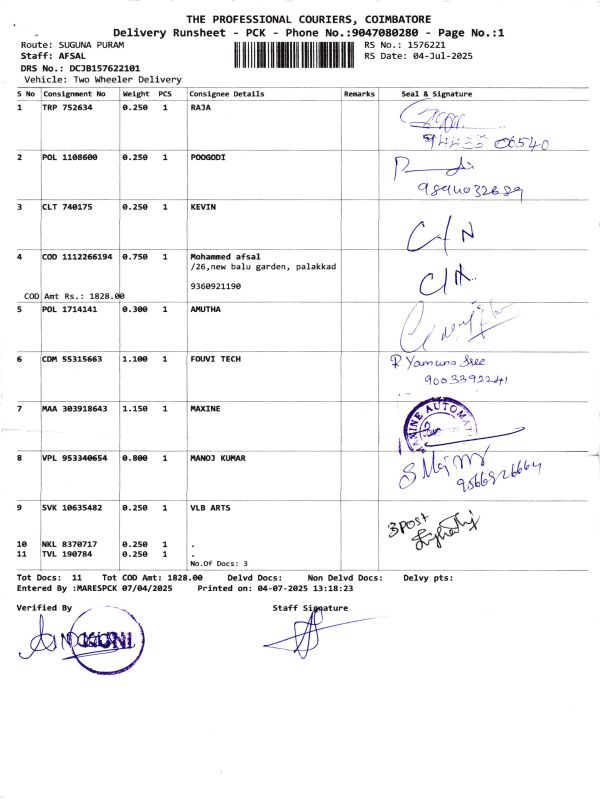 THE PROFESSIONAL COURIERS, COIMBATORE
Delivery Runsheet - PCK - Phone No.:9047080280 - Page No.:1
Route: SUGUNA PURAM RS No.: 1576221
Staff: AFSAL RS Date: 04-Jul-2025
DRS No.: DCJB157622101
Vehicle: Two Wheeler Delivery
S No Consignment No Weight PCS Consignee Details Remarks Seal & Signature
1 TRP 752634 0.250 1 RAJA
06540
2 POL 1108600 0.250 1 POOGODI
9894032689
3 CLT 740175 0.250 1 KEVIN
C/N
4 COD 1112266194 0.750 1 Mohammed afsal
/26,new balu garden, palakkad
9360921190
COD Amt Rs.: 1828.00
5 POL 1714141 0.300 1 AMUTHA
6 CDM 55315663 1.100 1 FOUVI TECH
P Yamuna Sree
9003392241
7 MAA 303918643 1.150 1 MAXINE
8 VPL 953340654 0.800 1 MANOJ KUMAR
9566826664
9 SVK 10635482 0.250 1 VLB ARTS
3 POST
10 NKL 8370717 0.250 1 .
11 TVL 190784 0.250 1 .
No.Of Docs: 3
Tot Docs: 11 Tot COD Amt: 1828.00 Delvd Docs: Non Delvd Docs: Delvy pts:
Entered By :MARESPCK 07/04/2025 Printed on: 04-07-2025 13:18:23
Verified By Staff Signature